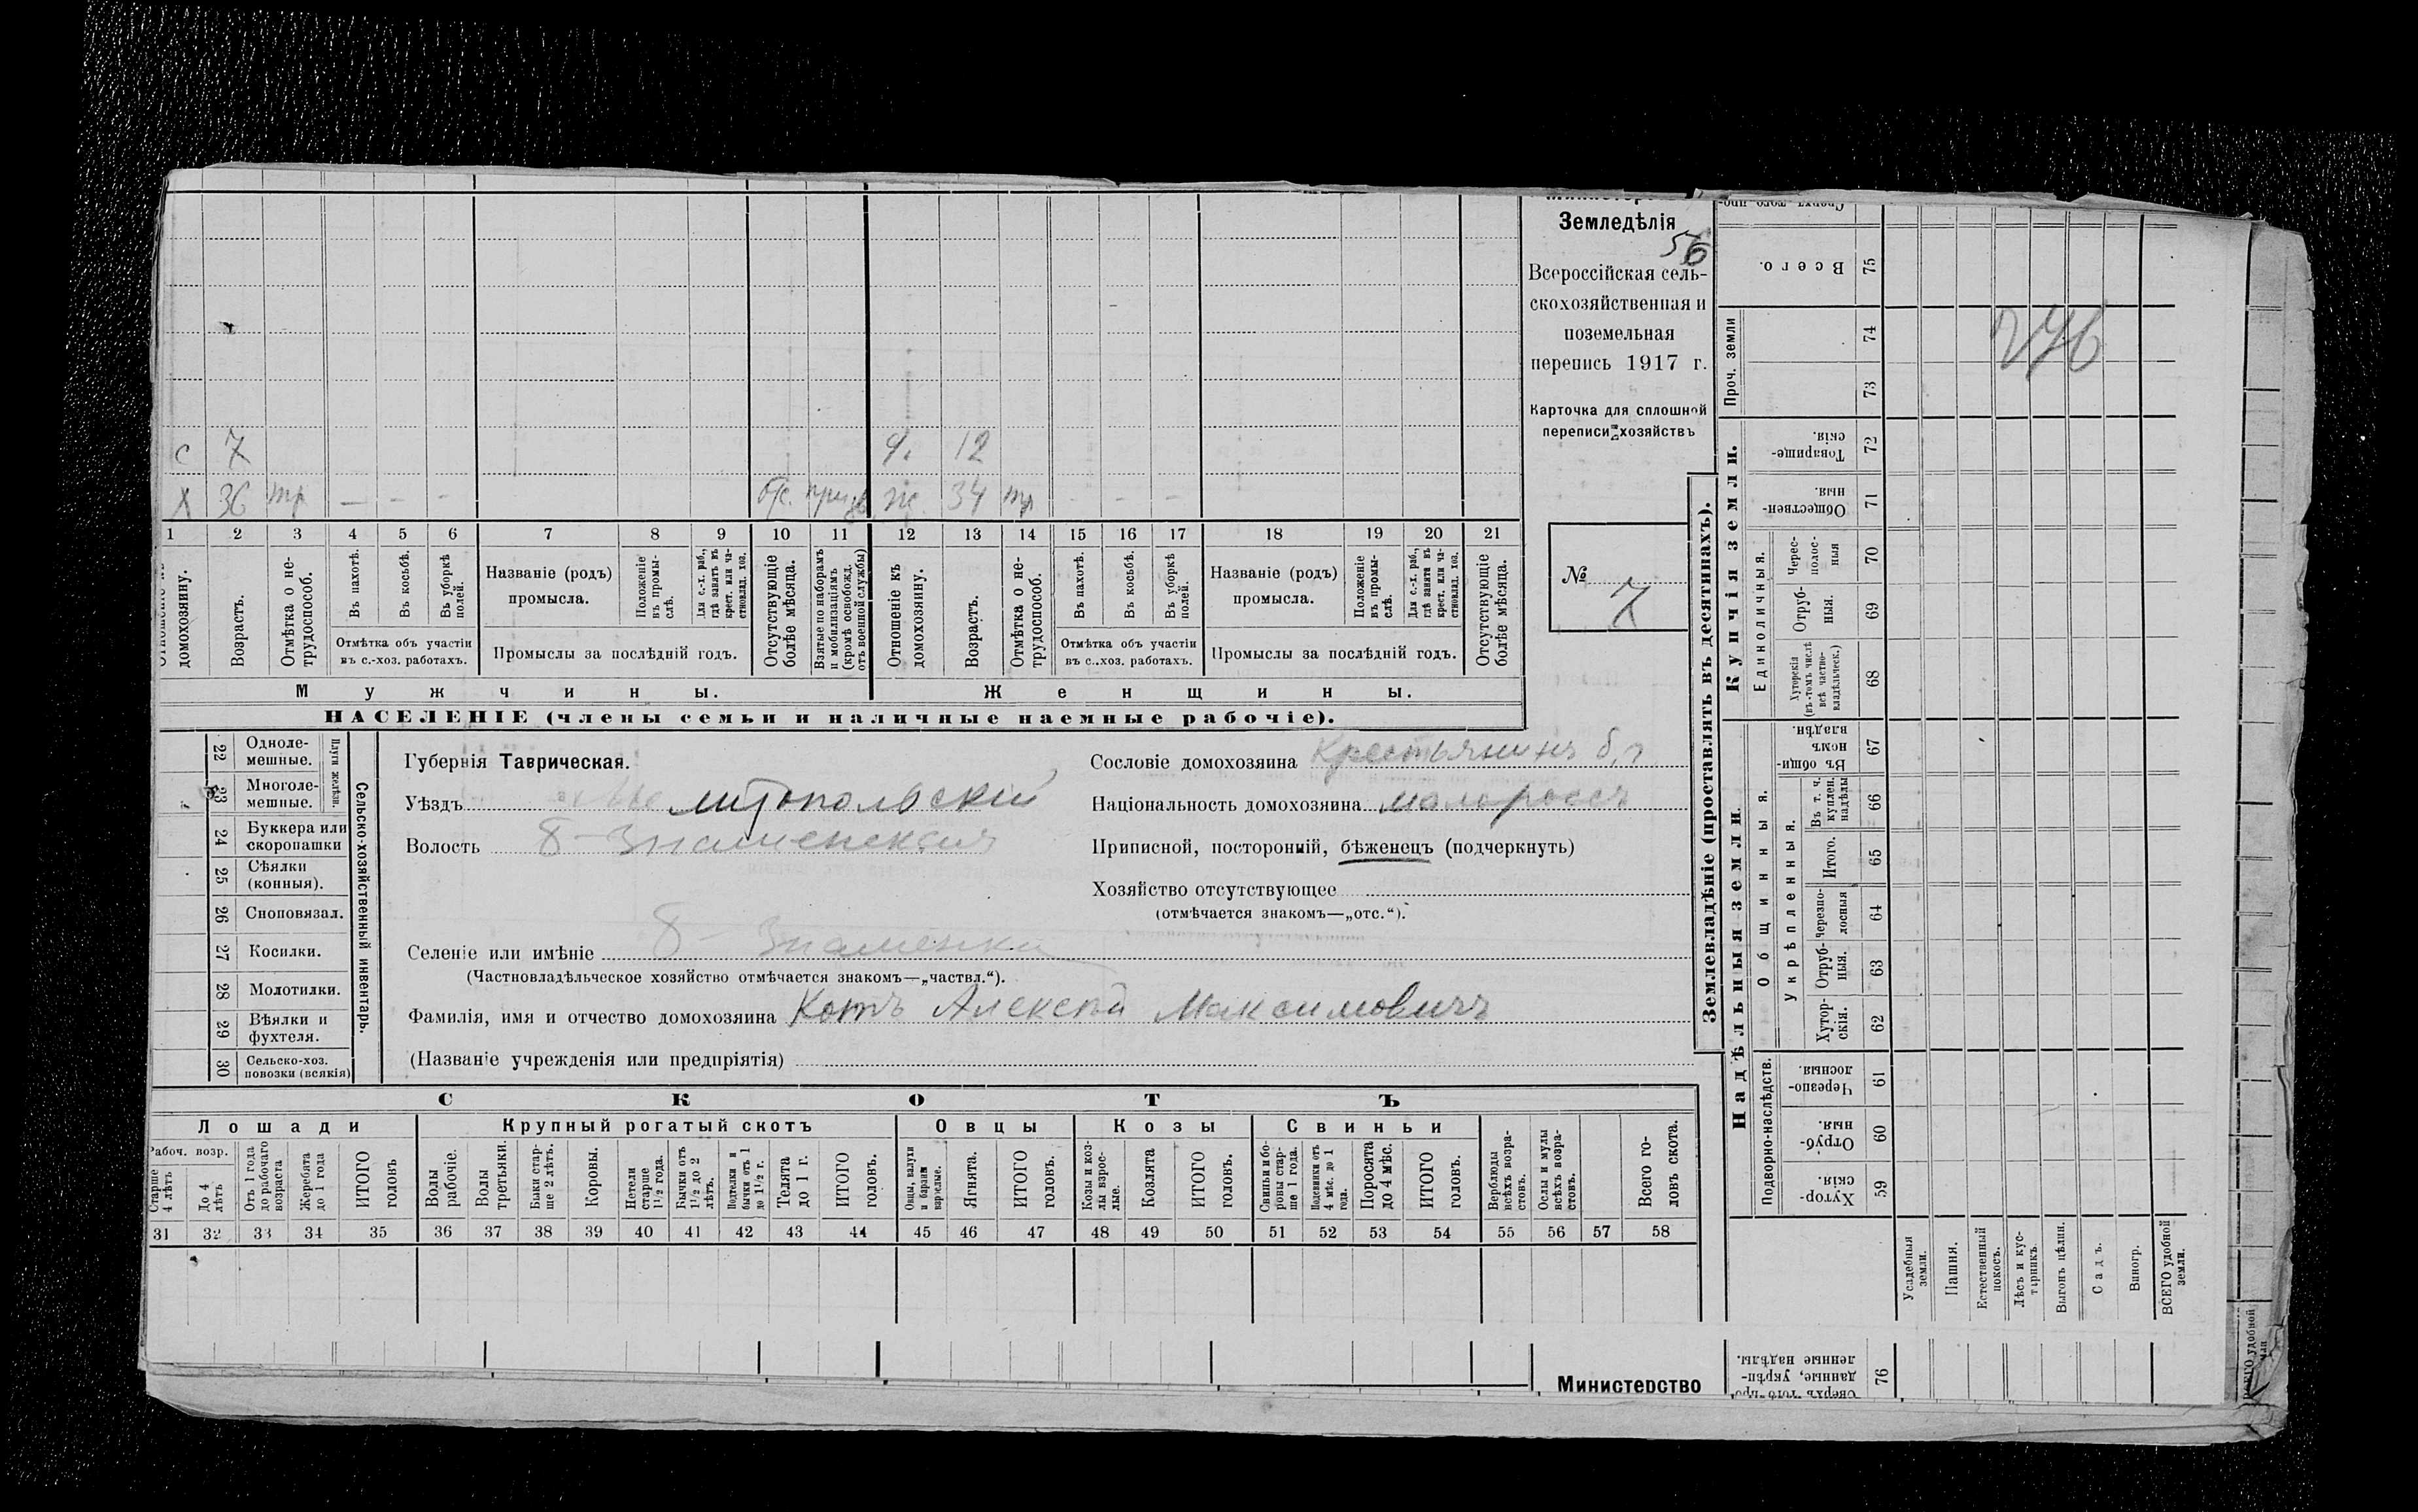 с 7 д. 12
х 36 тр — - - бс. призв. ж. 34 тр - - -
1 2 3 4 5 6 7 8 9 10 11 12 13 14 15 16 17 18 19 20 21
домохозяину.
Возрастъ.
Отмѣтка о не-
трудоспособ.
Въ пахотѣ.
Въ косьбѣ.
Въ уборкѣ
полей.
Отмѣтка объ участіи
въ с.-хоз. работахъ.
Названіе (родъ)
промысла.
Положеніе
въ промы-
слѣ.
Для с.-х. раб.,
гдѣ занятъ въ
крест. или ча-
стновлад. хоз.
Промыслы за послѣдній годъ.
Отсутствующіе
болѣе мѣсяца.
Взятые по наборамъ
и мобилизаціямъ
(кромѣ освобожд.
отъ военной службы)
Отношеніе къ
домохозяину.
Возрастъ.
Отмѣтка о не-
трудоспособ.
Въ пахотѣ.
Въ косьбѣ.
Въ уборкѣ
полей.
Отмѣтка объ участіи
въ с.-хоз. работахъ.
Названіе (родъ)
промысла.
Положеніе
въ промы-
слѣ.
Для с.-х. раб.,
гдѣ занята въ
крест. или ча-
стновлад. хоз.
Промыслы за послѣдній годъ.
Отсутствующіе
болѣе мѣсяца.
Мужчины.
Женщины.
НАСЕЛЕНІЕ (члены семьи и наличные наемные рабочіе).
Земледѣлія
56
Всероссійская сель-
скохозяйственная и
поземельная
перепись 1917 г.
Карточка для сплошной
переписи хозяйствъ
№
7
22 Одноле-
мешные.
23 Многоле-
мешные.
Плуги желѣзн.
24 Буккера или
скоропашки
25 Сѣялки
(конныя).
26 Сноповязал.
27 Косилки.
28 Молотилки.
29 Вѣялки и
фухтеля.
30 Сельско-хоз.
повозки (всякія)
Сельско-хозяйственный инвентарь.
Губернія Таврическая.
Уѣздъ литопольскій
Волость Б-Знаменская
Селеніе или имѣніе Б- Знаменка
(Частновладѣльческое хозяйство отмѣчается знакомъ—„частвл.“).
Фамилія, имя и отчество домохозяина Котъ Алексѣй Максимовичъ
(Названіе учрежденія или предпріятія)
Сословіе домохозяина Крестьянинъ б.г.
Національность домохозяина малороссъ
Приписной, посторонній, бѣженецъ (подчеркнуть)
Хозяйство отсутствующее
(отмѣчается знакомъ—„отс.“).
СКОТЪ
Лошади
Крупный рогатый скотъ
Овцы
Козы
Свиньи
Рабоч. возр.
Старше
4 лѣтъ
До 4
лѣтъ
Отъ 1 года
до рабочаго
возраста
Жеребята
до 1 года
ИТОГО
головъ
Волы
рабочіе.
Волы
третьяки.
Быки стар-
ше 2 лѣтъ.
Коровы.
Нетели
старше
1½ года.
Бычки отъ
1½ до 2
лѣтъ.
Подтелки и
бычки отъ 1
до 1½ г.
Телята
до 1 г.
ИТОГО
головъ.
Овцы, валухи
и бараны
взрослые.
Ягнята.
ИТОГО
головъ.
Козы и коз-
лы взрос-
лые.
Козлята
ИТОГО
головъ.
Свиньи и бо-
ровы стар-
ше 1 года.
Подсвинки отъ
4 мѣс. до 1
года.
Поросята
до 4 мѣс.
ИТОГО
головъ.
Верблюды
всѣхъ возра-
стовъ.
Ослы и мулы
всѣхъ возра-
стовъ.
Всего го-
ловъ скота.
31 32 33 34 35 36 37 38 39 40 41 42 43 44 45 46 47 48 49 50 51 52 53 54 55 56 57 58
Министерство
Землевладѣніе (проставлять въ десятинахъ).
Купчія земли.
Надѣльныя земли
Сверхъ того про-
Всего. 75
Проч. земли
74
73
Товарище-
скія. 72
Обществен-
ныя. 71
Единоличныя.
Черес-
полос-
ныя 70
Отруб-
ныя. 69
Хуторскія
(въ томъ числѣ
всѣ частно-
владѣльческ.) 68
Общинныя.
Въ общи-
номъ
владѣн. 67
Укрѣпленныя.
Въ т. ч.
куплен.
надѣлы 66
Итого. 65
Черезпо-
лосныя 64
Отруб-
ныя. 63
Хутор-
скія. 62
Подворно-наслѣдств.
Черезпо-
лосныя. 61
Отруб-
ныя. 60
Хутор-
скія. 59
Усадебныя
земли.
Пашня.
Естественный
покосъ.
Лѣсъ и кус-
тарникъ.
Выгонъ цѣлин.
Садъ.
Виногр.
ВСЕГО удобной
земли.
Сверхъ того про-
данные, укрѣп-
ленные надѣлы. 76